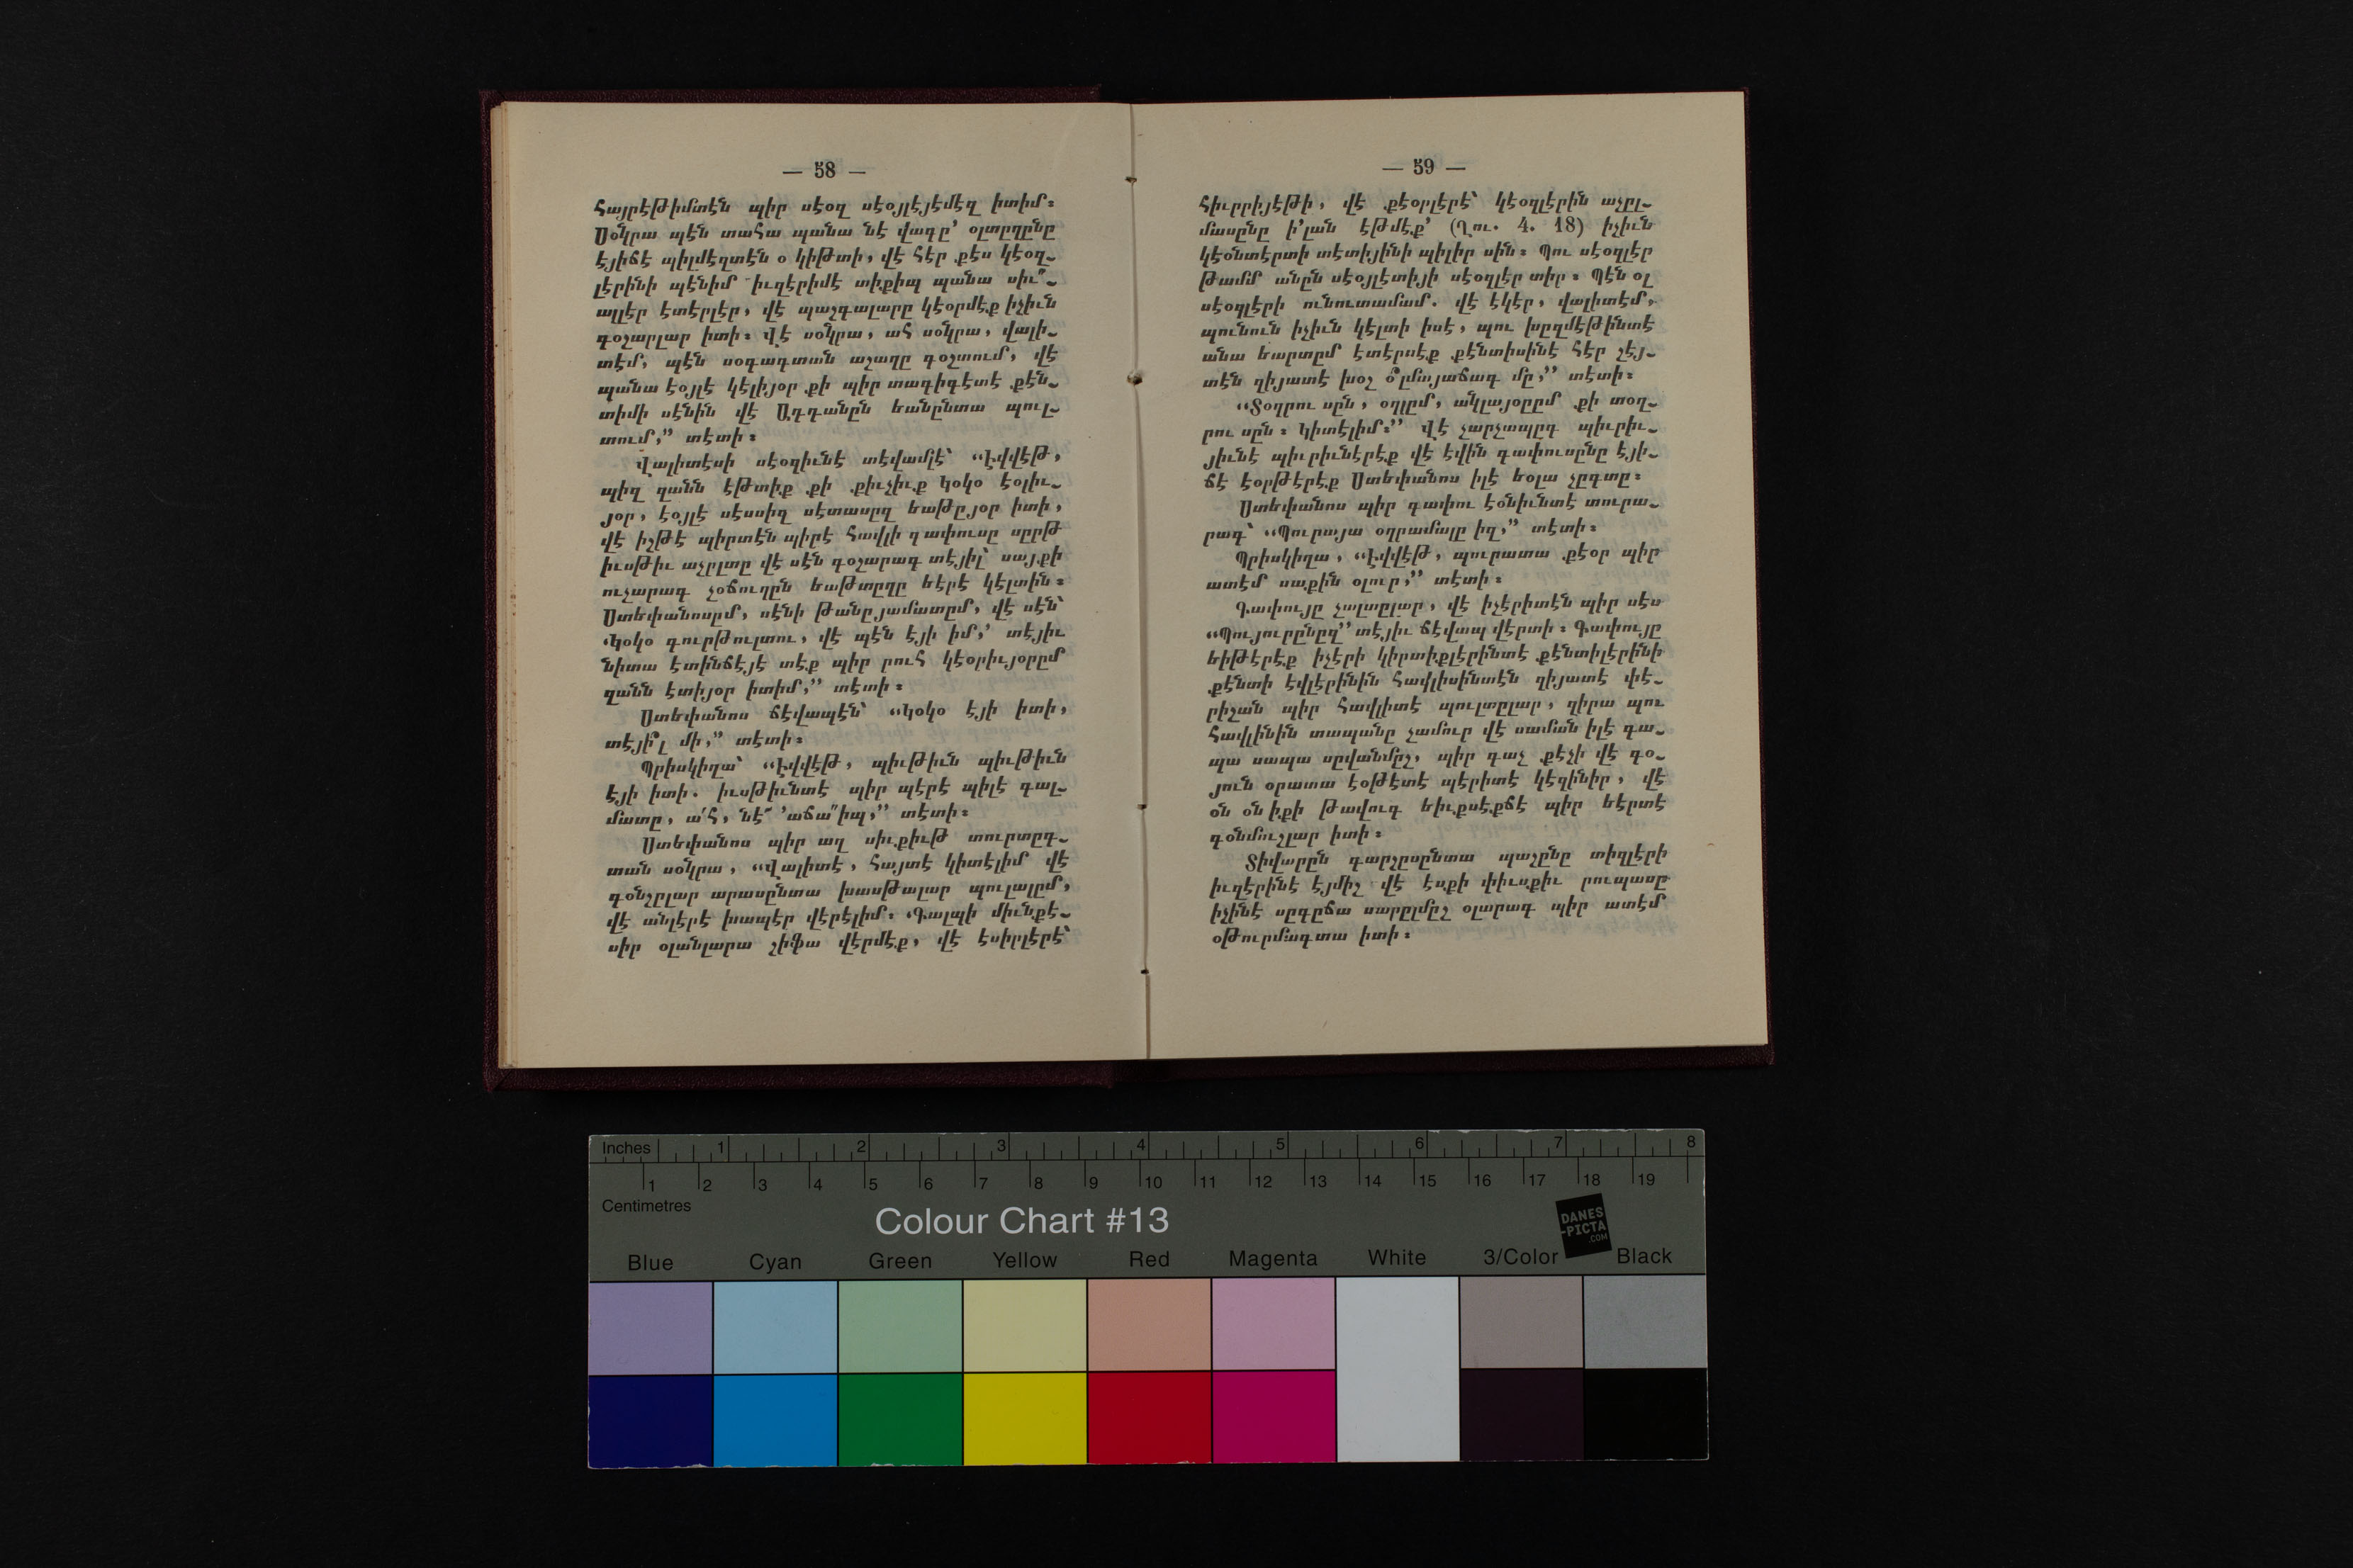 — 58 —
հայրէթիմտէն պիր սէօզ սէօյլէյէմէզ իտիմ։
Սօնկրա պէն տահա պանա նէ վագը՚ օլտըղընը
էյիճէ պիլմէզտէն օ կիթտի, վէ հէր քէս կէօզ֊
լէրինի պէնիմ իւզէրիմէ տիքիպ պանա սիւ՞֊
ալլէր էտէրլէր, վէ պաշգալարը կէօրմէք իչիւն
գօշարլար իտի։ Վէ սօնկրա, ահ սօնկրա, վալի֊
տէմ, պէն սօգագտան աշաղը գօշտում, վէ
պանա էօյլէ կէլիյօր քի պիր տագիգէտէ քէն֊
տիմի սէնին վէ Ադդանըն եանընտա պուլ֊
տում,” տէտի։
Վալիտէսի սէօզիւնէ տէվամլէ՝ “Էվվէթ,
պիզ զանն էթտիք քի քիւչիւք Կօկօ էօլիւ֊
յօր, էօյլէ սէսսիզ սէտասըզ եաթըյօր իտի,
վէ իշթէ պիրտէն պիրէ հավլի ղափուսը սըրթ
իւսթիւ աչըլտը վէ սէն գօշարագ տէյիլ՝ սայքի
ուչարագ չօճուղըն եաթտըղը եէրէ կէլտին։
Ստեփանոսըմ, սէնի թանըյամատըմ, վէ սէն՝
‘Կօկօ գուրթուլտու, վէ պէն էյի իմ,’ տէյիւ
նիտա էտինճէյէ տէք պիր րուհ կէօրիւյօրըմ
զանն էտիյօր իտիմ,” տէտի։
Ստեփանոս ճէվապէն՝ “Կօկօ էյի իտի,
տէյի՞լ մի,” տէտի։
Պրիսկիղա՝ “Էվվէթ, պիւթիւն պիւթիւն
էյի իտի. իւսթիւնտէ պիր պէրէ պիլէ գալ֊
մատը, ա՛հ, նէ՜ ՚աճա՟իպ,” տէտի։
Ստեփանոս պիր ազ սիւքիւթ տուրտըգ֊
տան սօնկրա, “Վալիտէ, հայտէ կիտէլիմ վէ
գօնշըլար արասընտա խասթալար պուլալըմ,
վէ անլէրէ խապէր վէրէլիմ։ Գալպի միւնքէ֊
սիր օլանլարա շիֆա վէրմէք, վէ էսիրլէրէ՝
— 59 —
հիւրրիյէթի, վէ քէօրլէրէ՝ կէօզլէրին աչըլ֊
մասընը ի՚լան էթմէք՚ (Ղու. 4. 18) իչիւն
կէօնտէրտի տէտիյինի պիլիր սին։ Պու սէօզլէր
թամմ անըն սէօյլէտիյի սէօզլէր տիր։ Պէն օլ
սէօզլէրի ունուտամամ. վէ էկէր, վալիտէմ,
պունուն իչիւն կէլտի իսէ, պու խըզմէթինտէ
անա եարտըմ էտէրսէք քէնտիսինէ հէր շէյ֊
տէն զիյատէ խօշ օ՞լմայաճագ մը,” տէտի։
“Տօղրու սըն, օղլըմ, անկլայօրըմ քի տօղ֊
րու սըն։ Կիտէլիմ։” Վէ չարչապըգ պիւրիւ֊
յիւնէ պիւրիւնէրէք վէ էվին գափուսընը էյի֊
ճէ էօրթէրէք Ստեփանոս իլէ եօլա չըգտը։
Ստեփանոս պիր գափու էօնիւնտէ տուրա֊
րագ՝ “Պուրայա օղրամալը իզ,” տէտի։
Պրիսկիղա, “Էվվէթ, պուրատա քէօր պիր
ատէմ սաքին օլուր,” տէտի։
Գափույը չալտըլար, վէ իչէրիտէն պիր սէս
“Պույուրընըզ” տէյիւ ճէվապ վէրտի։ Գափույը
եիթէրէք իչէրի կիրտիքլէրինտէ քէնտիլէրինի
քէնտի էվլէրինին հավլիսինտէն զիյատէ փէ֊
րիշան պիր հավլիտէ պուլտըլար, զիրա պու
հավլինին տապանը չամուր վէ սաման իլէ գա֊
պա սապա սըվանմըշ, պիր գաչ քէչի վէ գօ֊
յուն օրատա էօթէտէ պէրիտէ կէզինիր, վէ
օն օն իքի թավուգ եիւքսէքճէ պիր եէրտէ
գօնմուշլար իտի։
Տիվարըն գարշըսընտա պաշընը տիզլէրի
իւզէրինէ էյմիշ վէ էսքի փիւսքիւ րուպասը
իչինէ սըգըճա սարըլմըշ օլարագ պիր ատէմ
օթուրմագտա իտի։
Inches 1 2 3 4 5 6 7 8
1 2 3 4 5 6 7 8 9 10 11 12 13 14 15 16 17 18 19
Centimetres
Colour Chart #13
DANES
-PICTA
.COM
Blue Cyan Green Yellow Red Magenta White 3/Color Black